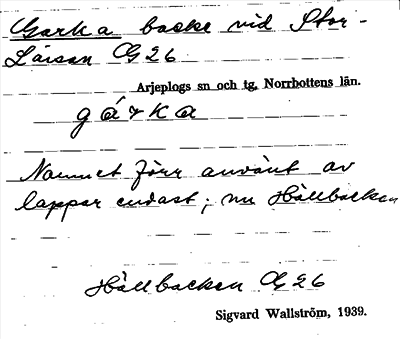 Garka backe vid Stor-
Laisan G 26
Arjeplogs sn och tg, Norrbottens län.
gárka
Namnet förr använt av
lappar endast; nu Hällbacken
Hällbacken G 26
Sigvard Wallström, 1939.